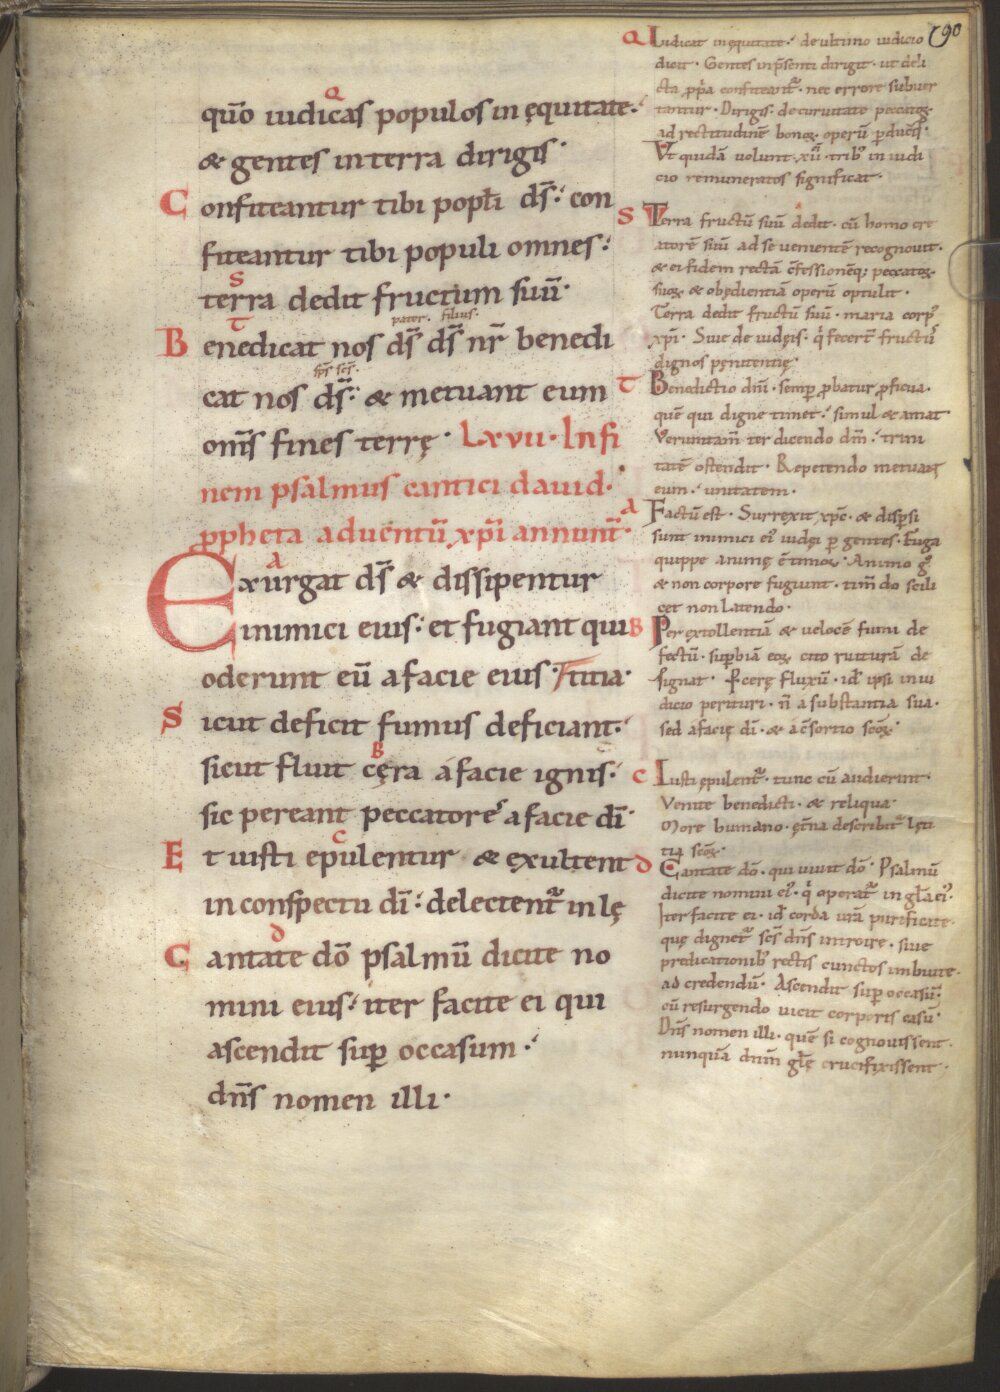 90
quō iudicas populos in ęquitate·
& gentes in terra dirigis·
C onfiteantur tibi popl̄i ds̄· con
fiteantur tibi populi omnes·
terra dedit fructum suū·
pater· filius·
B enedicat nos ds̄ ds̄ nr̄ benedi
sp̄s sc̄s·
cat nos ds̄· & metuant eum
om̄s fines terrę· LXVII· In fi
nem psalmus cantici dauid·
ꝓpheta aduentū xp̄i annunt̄·
Exurgat ds̄ & dissipentur
inimici eius· et fugiant qui
oderunt eū a facie eius· titia·
S icut deficit fumus deficiant·
sicut fluit cęra a facie ignis·
sic pereant peccatores a facie dī·
E t iusti epulentur & exultent
in conspectu dī· delectent᷑ in lę
C antate dō psalmū dicite no
mini eius· iter facite ei qui
ascendit suꝑ occasum·
dn̄s nomen illi·
Q Iudicat in ęquitate· de ultimo iudicio
dicit· Gentes in p̄senti dirigit· ut deli
cta ꝓp̄a confiteant᷑· nec errore subuer
tantur· Dirigis· de curuitate peccatoꝝ
ad rectitudinē bonoꝝ operū ꝑducis·
Vt quidā uolunt xii tribꝫ in iudi
cio remuneratos significat·
S Terra fructū suū dedit· cū homo cre
atorē suū ad se uenientē recognouit·
& ei fidem rectā c̄fessionēq; peccatoꝝ
suoꝝ & obędientiā operū optulit·
Terra dedit fructū suū· maria corpꝰ
xp̄i· Siue de iudęis· q̇ fecert̄ fructꝰ
dignos pęnitentię·
T Benedictio dn̄i· semꝑ ꝓbatur ꝓficua·
quē qui digne timet· simul & amat
Veruntam̄ ter dicendo dm̄· trini
tatē ostendit· Repetendo metuant
eum· unitatem·
A Factū est· Surrexit xp̄c· & disꝑsi
sunt inimici eiꝰ iudęi ꝑ gentes· Fuga
quippe animę ē timor· Animo gͦ
& non corpore fugiunt· tim̄do scili
cet non latendo·
B Per extollentiā & velocē fumi de
fectū· suꝑbiā eoꝝ cito ruiturā de
signat· P̄ cerę fluxū· id ipsi in iu
dicio perituri· n̄ a substantia sua·
sed a facię dī· & a c̄sortio sc̄oꝝ·
C Iusti ępulent᷑· tunc cū audierint·
Venite benedicti· & reliqua·
More humano· ęt̄na describit᷑ lęti
tia sc̄oꝝ·
D Cantate dō· qui uiuit dō· Psalmū
dicite nomini eiꝰ· q̇ operat᷑ in gl̄a eiꝰ·
Iter facite ei· id corda ur̄a purificate·
quę dignet᷑ sc̄s dn̄s introire· siue
predicationibꝰ rectis cunctos imbuite·
ad credendū· Ascendit suꝑ occasū·
cū resurgendo uicit corporis casū·
Dn̄s nomen illi· quē si cognouissent·
nunquā dnm̄ gl̄ę crucifixissent·